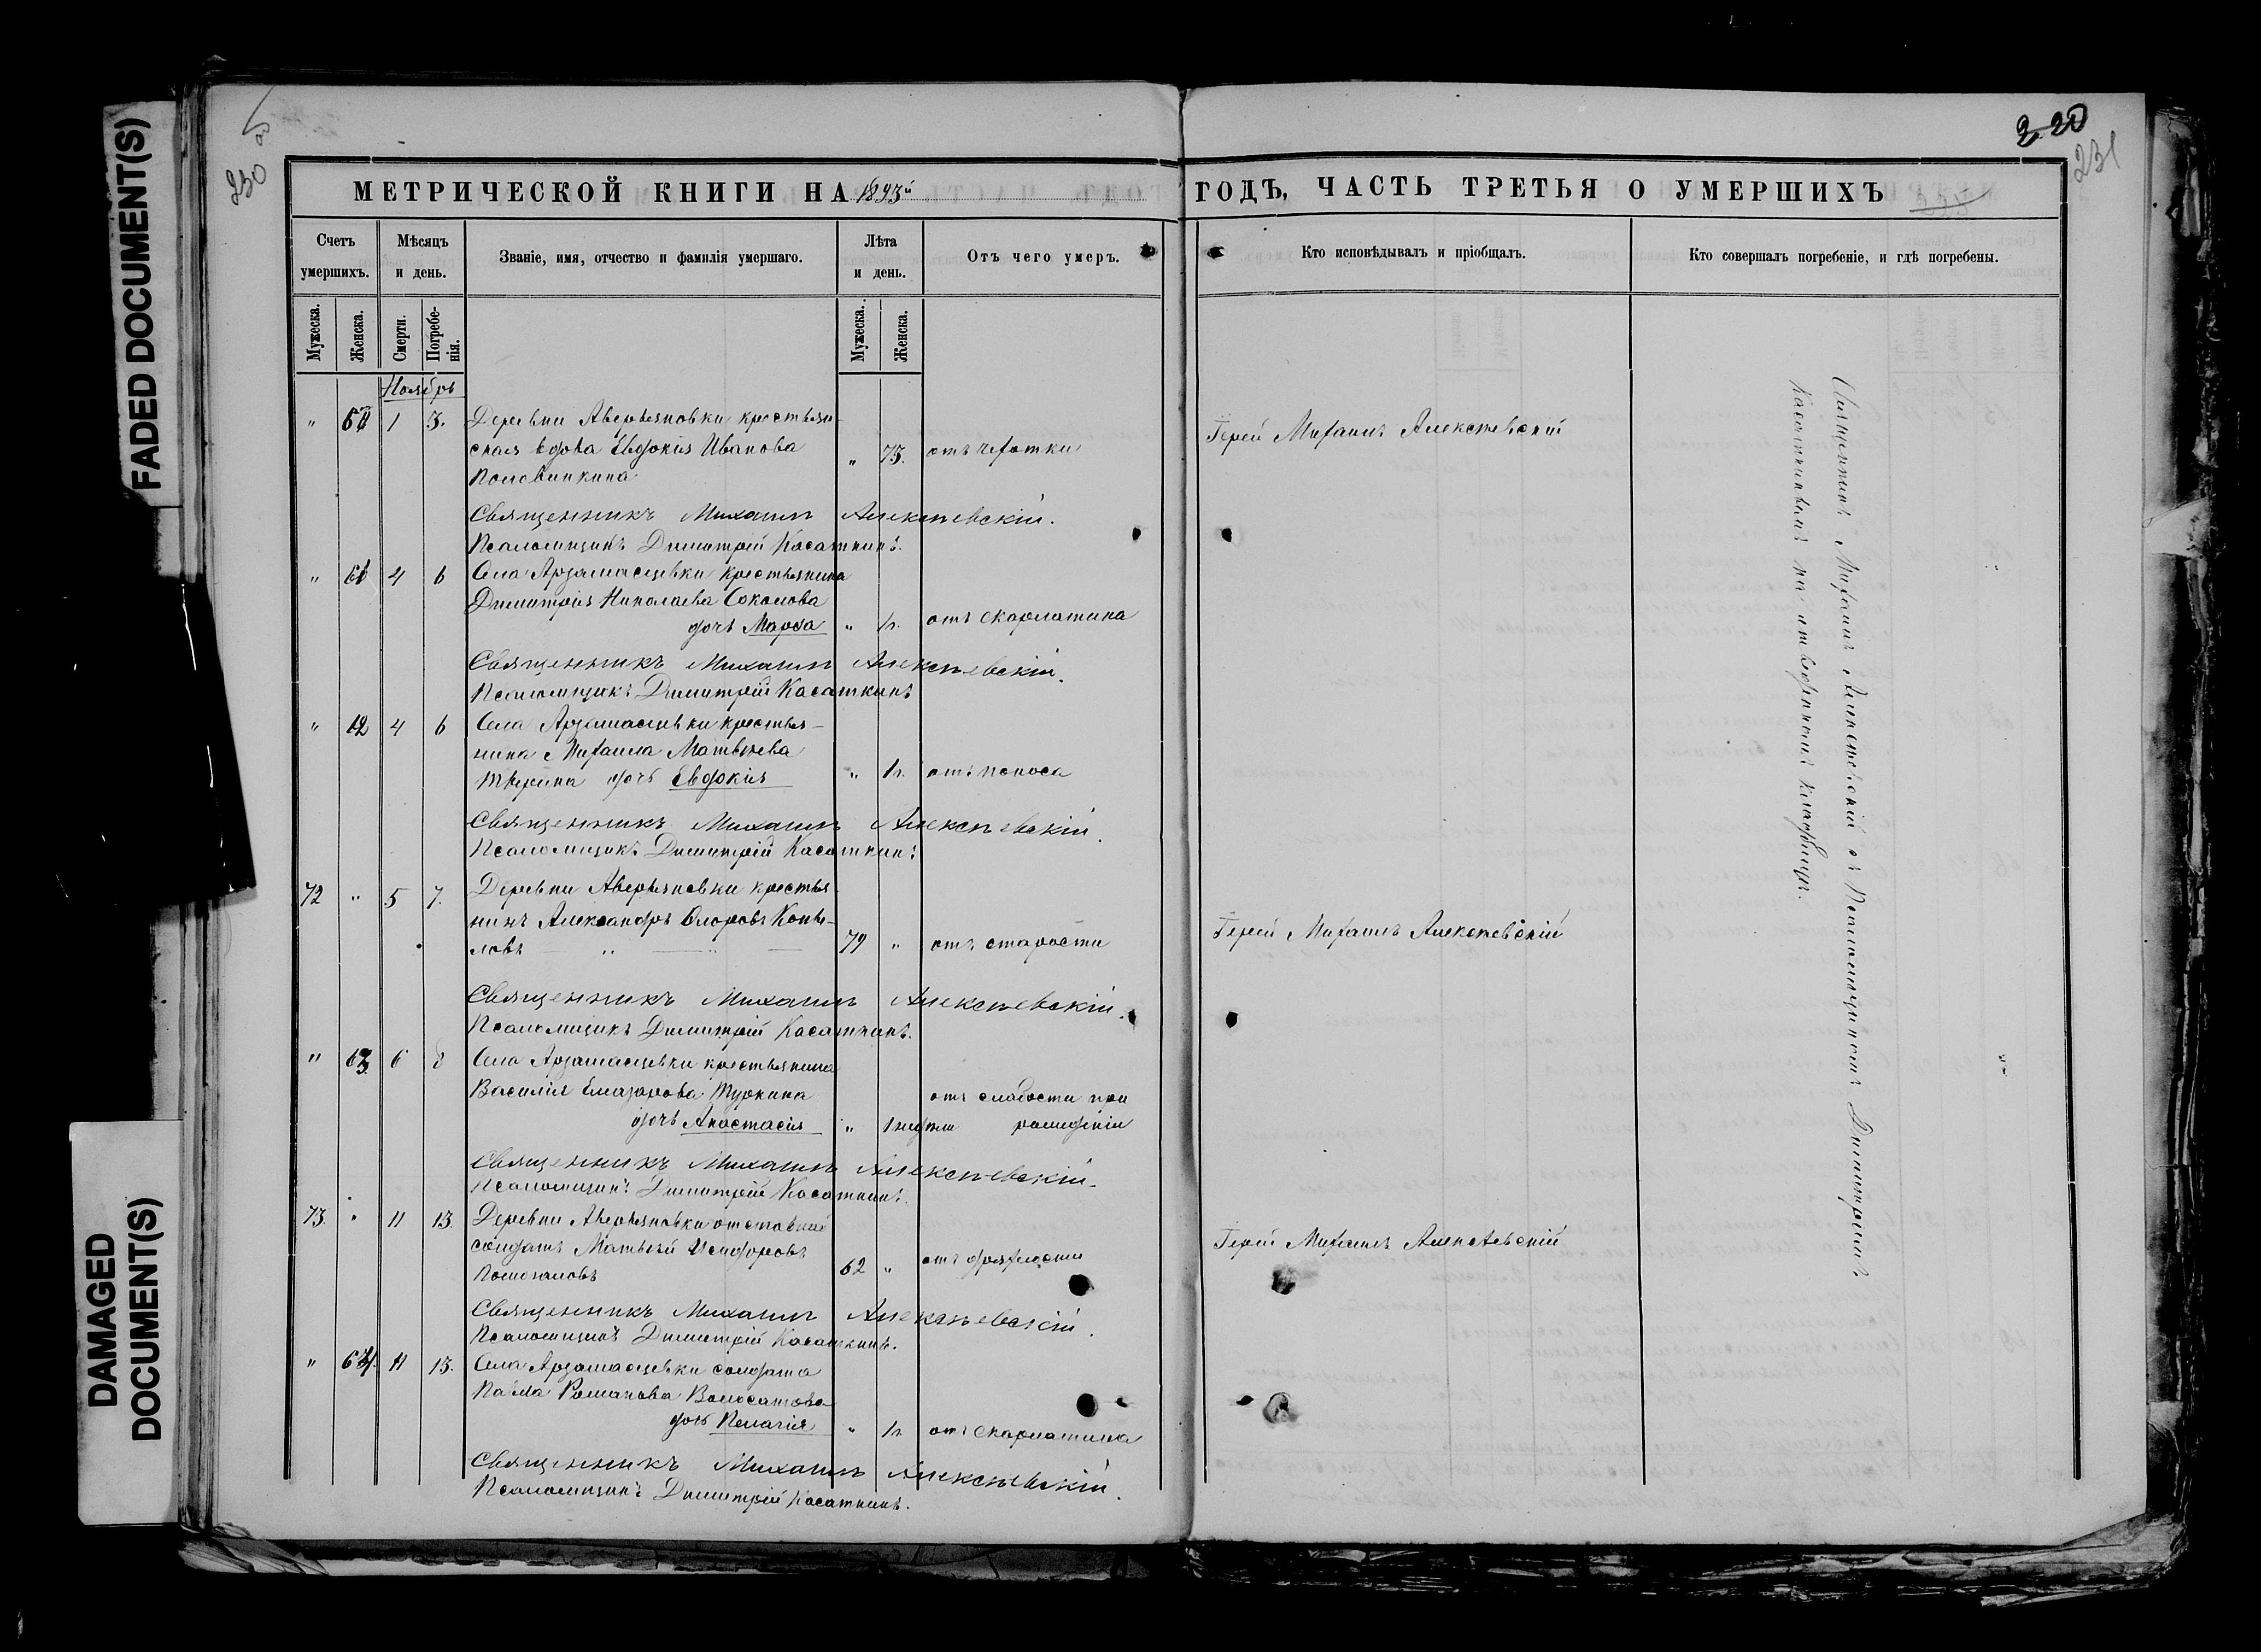 FADED DOCUMENT(S)
DAMAGED
DOCUMENT(S)
230 об
220
231
МЕТРИЧЕСКОЙ КНИГИ НА 1893й ГОДЪ, ЧАСТЬ ТРЕТЬЯ О УМЕРШИХЪ
Счетъ умершихъ.
Мѣсяцъ и день.
Званіе, имя, отчество и фамилія умершаго.
Лѣта и день.
Отъ чего умеръ.
Кто исповѣдывалъ и пріобщалъ.
Кто совершалъ погребеніе, и гдѣ погребены.
Мужеска. Женска. Смерти. Погребе-нія. Мужеска. Женска.
Ноябрь
" 1 3. Деревни Аверьяновки крестьян-
ская вдова Евдокія Иванова " 75. отъ чахотки Іерей Михаилъ Алексѣевскій
Половинкина
Священникъ Михаилъ Алексѣевскій.
Псаломщикъ Димитрій Касаткинъ.
" 61 4 6 Села Арзамасцевки крестьянина
Димитрія Николаева Соколова
дочь Марѳа " 1г. отъ скарлатина
Священникъ Михаилъ Алексѣевскій.
Псаломщикъ Димитрій Касаткинъ
" 4 6 Села Арзамасцевки крестья-
нина Михаила Матвѣева
дочь Евдокія " 1г. отъ поноса
Священникъ Михаилъ Алексѣевскій.
Псаломщикъ Димитрій Касаткинъ
72 " 5 7. Деревни Аверьяновки крестья-
нинъ Александръ Копы-
ловъ 79 " отъ старости Іерей Михаилъ Алексѣевскій
Священникъ Михаилъ Алексѣевскій.
Псаломщикъ Димитрій Касаткинъ.
" 63 6 8 Села Арзамасцевки крестьянина
Василія Елазарова Туркина отъ слабости при
дочь Анастасія " 1 недѣли рожденіи
Священникъ Михаилъ Алексѣевскій.
Псаломщикъ Димитрій Касаткинъ.
73. " 11 13. Деревни Аверьяновки отставной
солдатъ Матвѣй Исидоровъ 62 " отъ дряхлости Іерей Михаилъ Алексѣевскій
Священникъ Михаилъ Алексѣевскій.
Псаломщикъ Димитрій Касаткинъ.
" 64. 11 13. Села Арзамасцевки солдата
Павла Романова Волосатова
дочь Пелагія " 1г. отъ скарлатина
Священникъ Михаилъ Алексѣевскій.
Псаломщикъ Димитрій Касаткинъ.
Священникъ Михаилъ Алексѣевскій съ Псаломщикомъ Димитріемъ
Касаткинымъ на отведенномъ кладбищѣ.